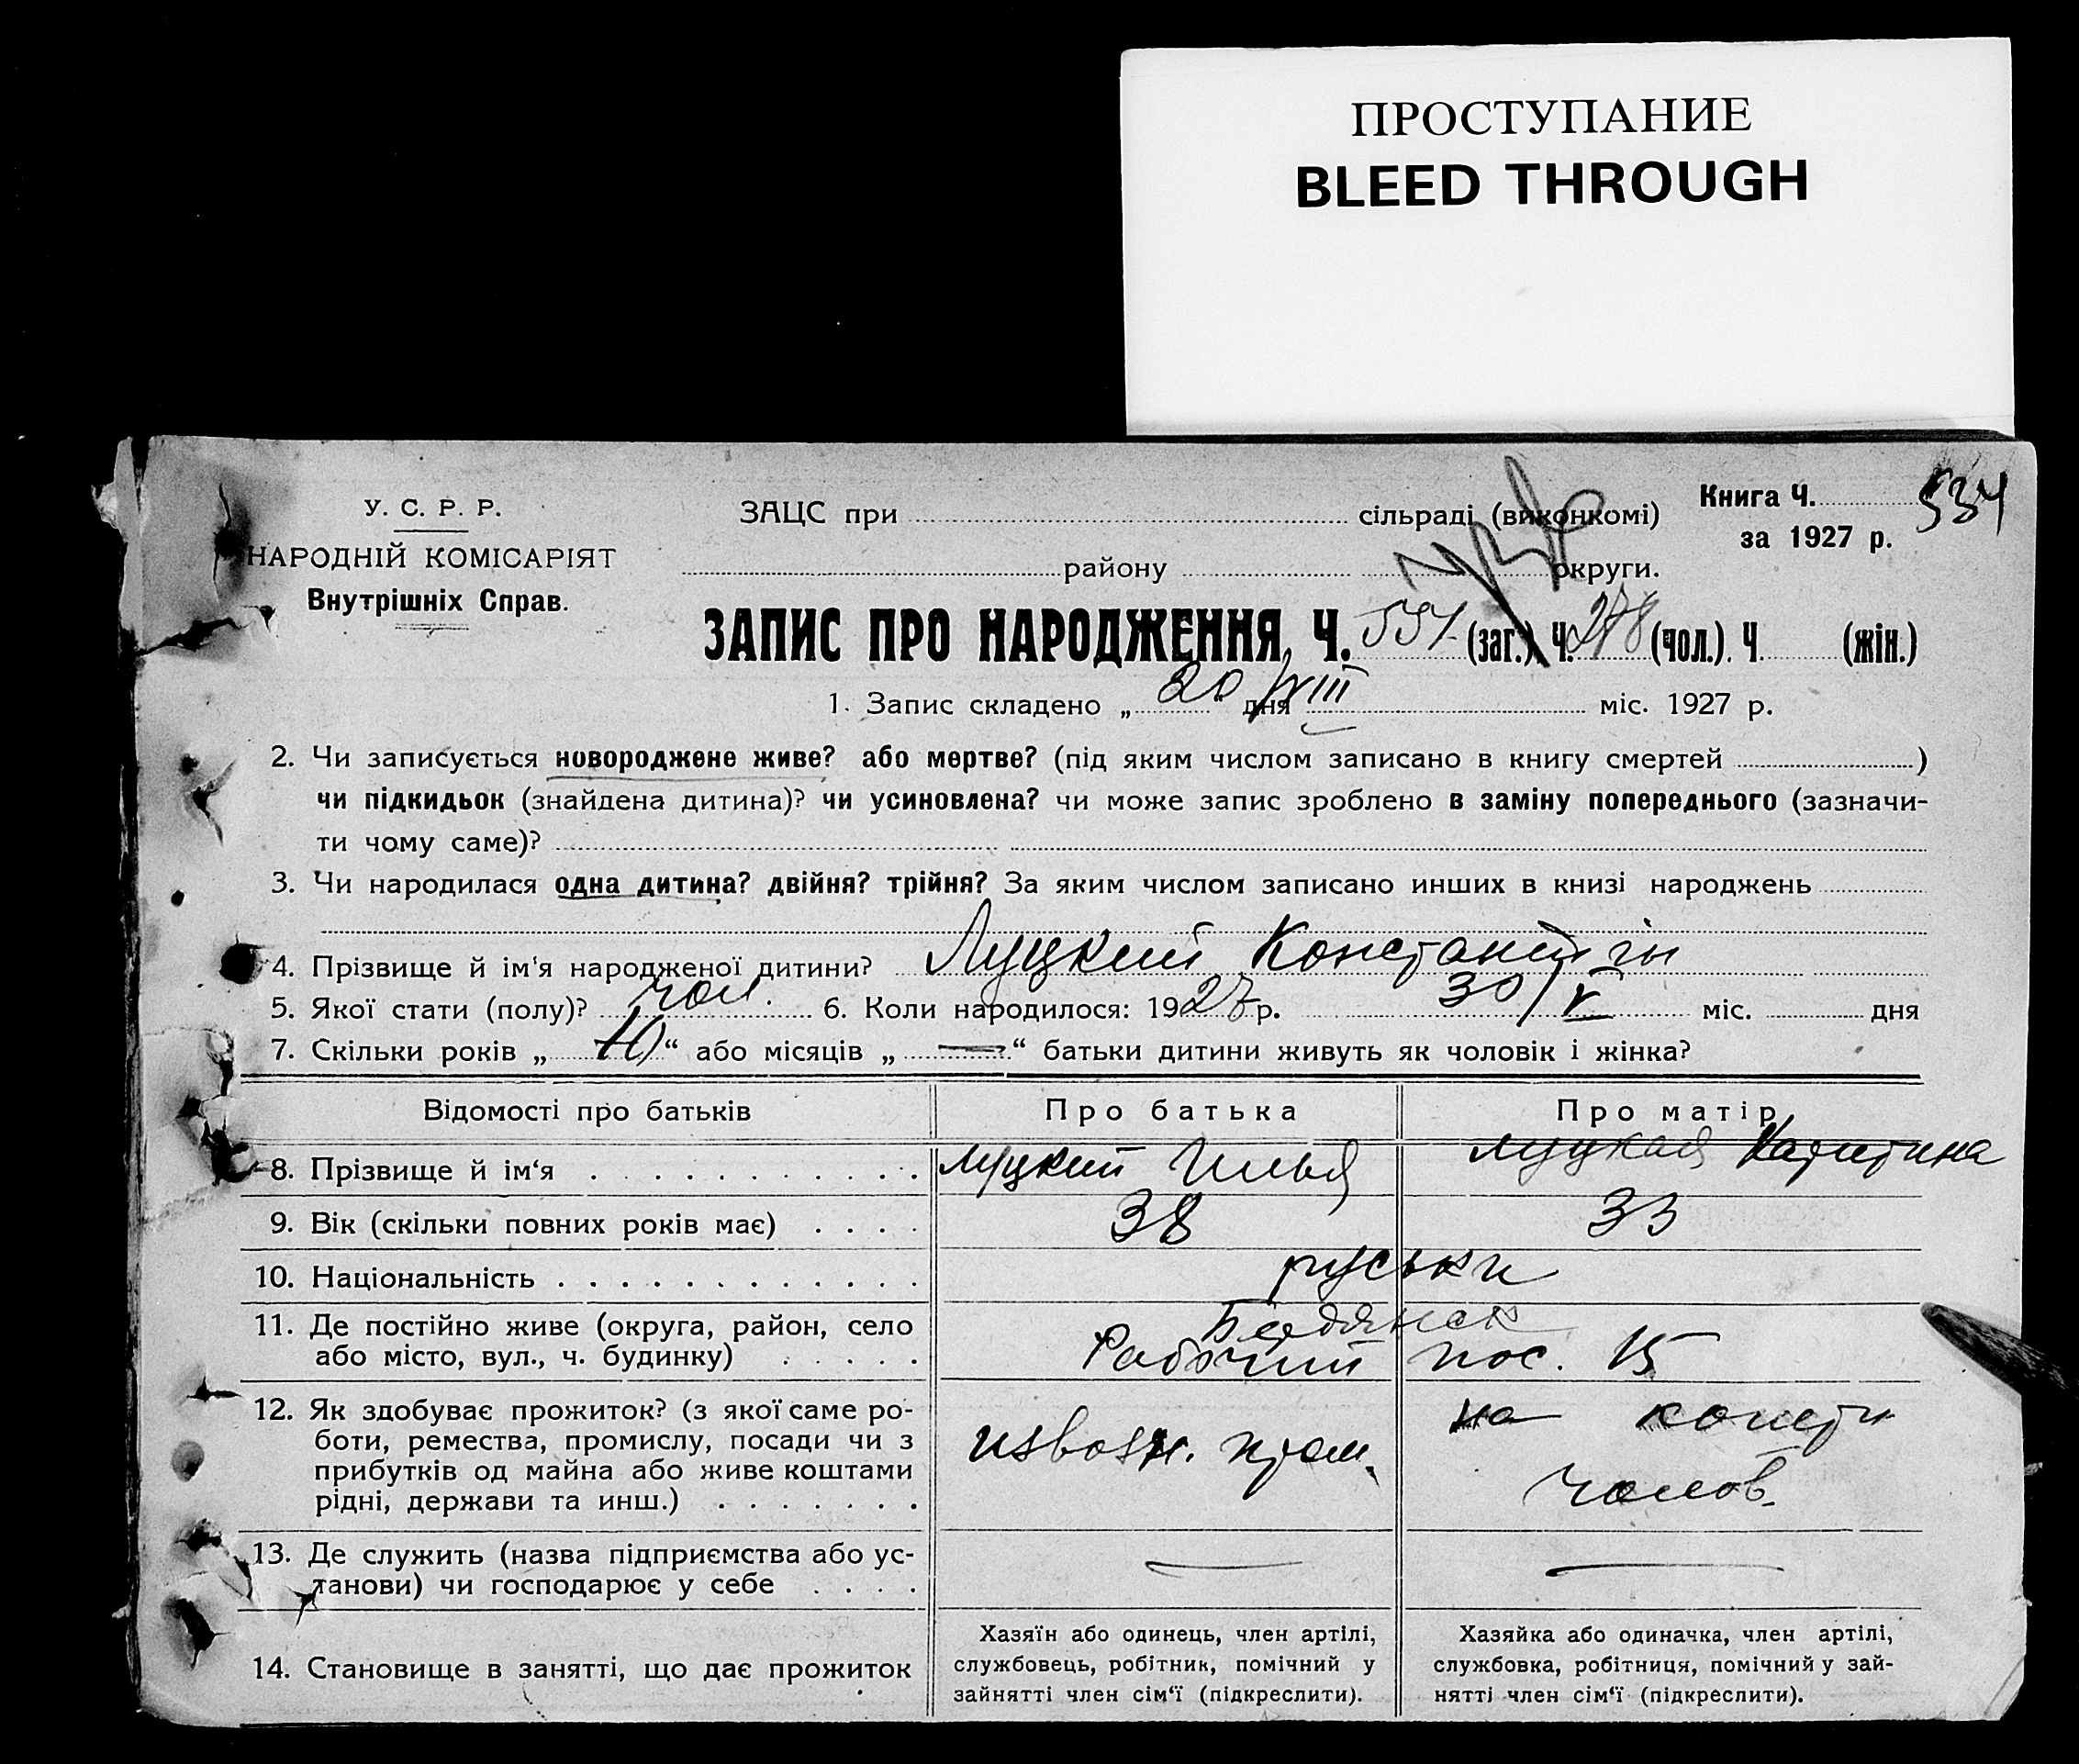 ПРОСТУПАНИЕ
BLEED THROUGH
У. С. Р. Р.
НАРОДНІЙ КОМІСАРІЯТ
Внутрішніх Справ.
ЗАЦС при сільраді (виконкомі)
району округи.
Книга Ч. 534
за 1927 р.
ЗАПИС ПРО НАРОДЖЕННЯ, Ч. 534 (заг.), Ч. 278 (чол.). Ч. (жін.)
1. Запис складено „ 20 “ дня /VIII міс. 1927 р.
2. Чи записується новороджене живе? або мертве? (під яким числом записано в книгу смертей )
чи підкидьок (знайдена дитина)? чи усиновлена? чи може запис зроблено в заміну попереднього (зазначи-
ти чому саме)?
3. Чи народилася одна дитина? двійня? трійня? За яким числом записано инших в книзі народжень
4. Прізвище й ім'я народженої дитини? Луцкий Константін
5. Якої стати (полу)? чол. 6. Коли народилося: 1927 р. 30/V міс. дня
7. Скільки років „ 10 “ або місяців „ — “ батьки дитини живуть як чоловік і жінка?
Відомості про батьків Про батька Про матір
8. Прізвище й ім‘я Луцкий Илья Луцкая
9. Вік (скільки повних років має) 38 33
10. Національність руськи
11. Де постійно живе (округа, район, село
або місто, вул., ч. будинку)
Бердянск
Рабочий пос. 15
12. Як здобуває прожиток? (з якої саме ро-
боти, ремества, промислу, посади чи з
прибутків од майна або живе коштами
рідні, держави та инш.)
извозн. пром.
на кошти
чолов.
13. Де служить (назва підприємства або ус-
танови) чи господарює у себе — —
14. Становище в занятті, що дає прожиток
Хазяїн або одинець, член артілі,
службовець, робітник, помічний у
зайнятті член сім‘ї (підкреслити).
Хазяйка або одиначка, член артілі,
службовка, робітниця, помічний у зай-
нятті член сім‘ї (підкреслити).